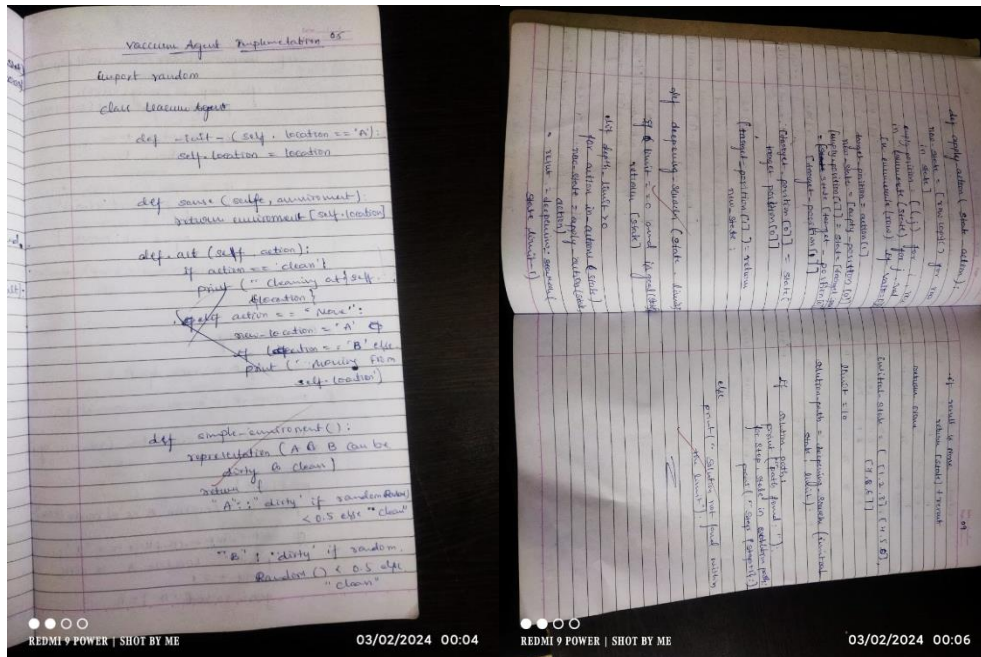 Vaccum Agent Implementation 05
import random
class Vacuum Agent
def -init- (self, location == 'A'):
self.location = location
def sense (self, environment)
return environment [self.location]
def.act (self, action):
if action == 'clean'{
print (" Cleaning at {self.
location}
action == "Move":
new-location = "A"
if location == 'B' else
print (" Moving from
self.location}
def simple-environment():
representation (A & B can be
dirty & clean)
return {
"A": "dirty" if random
< 0.5 else "clean"
"B" : "dirty" if random.
Random() < 0.5 else
"clean"
REDMI 9 POWER | SHOT BY ME 03/02/2024 00:04
def apply action (state action);
new-state = [row copy() for row
in state]
empty position = (i, j) for i
in enumerate (state) for j, val
in enumerate (row)
target-position = action[1]
new-state [empty-position [0]]
[empty-position [1]] = state
[target-position[1]]
[target-position[0]] = state[
target position[0]]
[target-position[1]] = return
new-state;
def deepening-search (state limit)
if limit == 0 and is goal
return [state]
elif depth-limit > 0
for action in actions (state)
new-state = apply action (state
action)
result = deepening-search(
state limit-1)
09
if result is none
return [state] + result
return none
initial-state = ([1,2,3], [4,5,0],
[7,8,6])
limit = 10
solution-path = deepening-search (initial
state, limit)
if solution path:
print ("path found :")
for step, state in solution path:
print (" Step {step+1}:
else
print (" Solution not found within
the limit")
REDMI 9 POWER | SHOT BY ME 03/02/2024 00:06